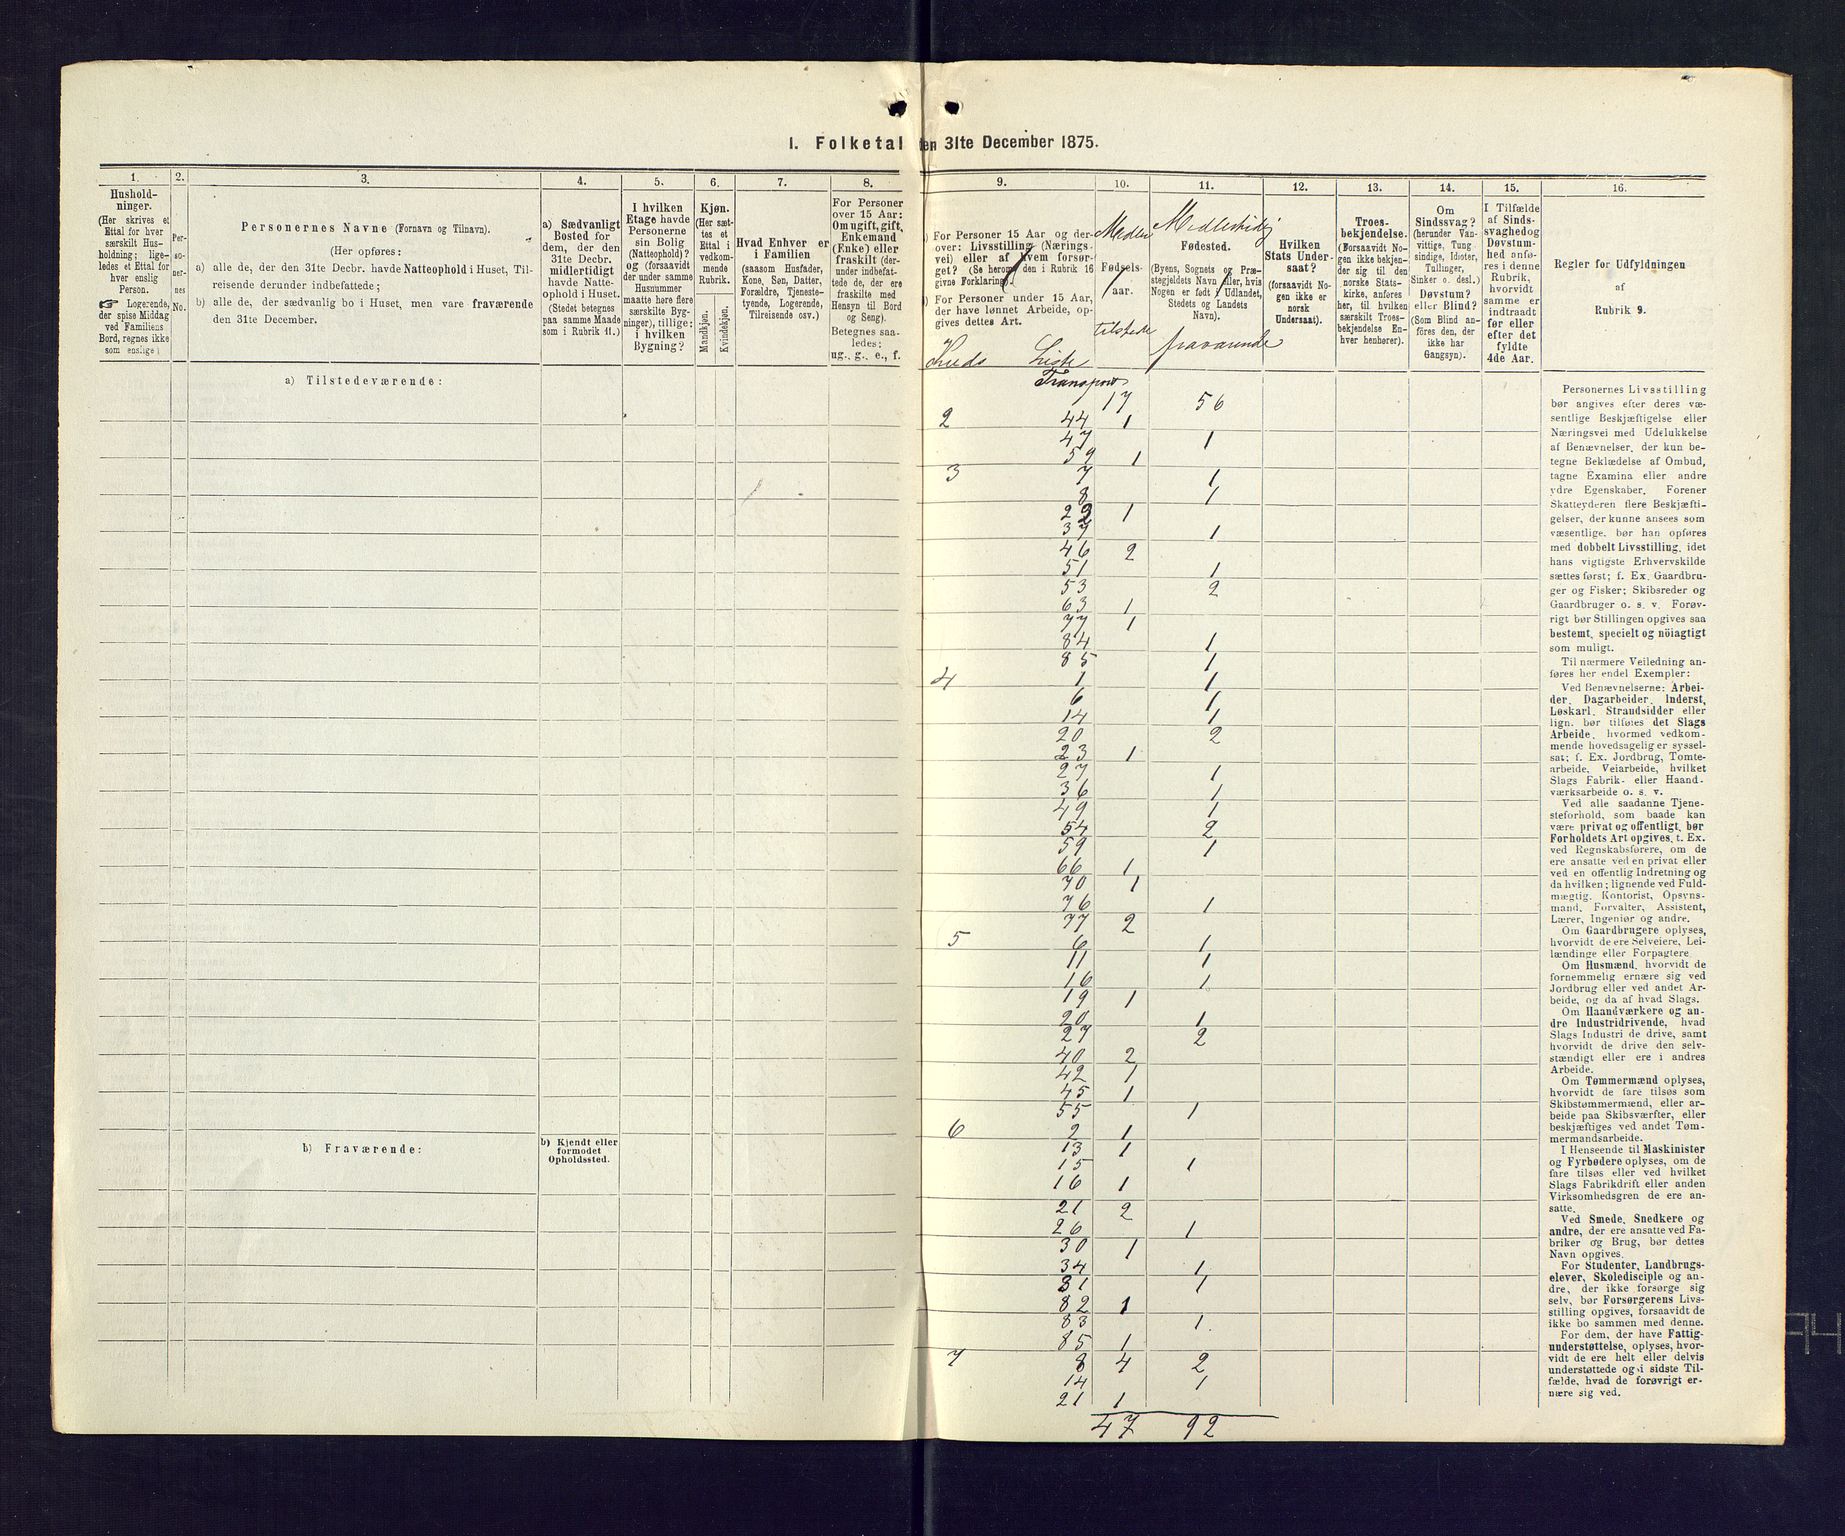 I. Folketal den 31te December 1875.
1.
Hushold-
ninger.
(Her skrives et
Ettal for hver
særskilt Hus-
holdning; lige-
ledes et Ettal for
hver enslig
Person.
☞ Logerende,
der spise Middag
ved Familiens
Bord, regnes ikke
som enslige)
2.
Per-
so-
ner-
nes
No.
3.
Personernes Navne (Fornavn og Tilnavn).
(Her opføres:
a) alle de, der den 31te Decbr. havde Natteophold i Huset, Til-
reisende derunder indbefattede;
b) alle de, der sædvanlig bo i Huset, men vare fraværende
den 31te December.
4.
a) Sædvanligt
Bosted for
dem, der den
31te Decbr.
midlertidigt
havde Natte-
ophold i Huset.
(Stedet betegnes
paa samme Maade
som i Rubrik 11.)
5.
I hvilken
Etage havde
Personerne
sin Bolig
(Natteophold)?
og (forsaavidt
der under samme
Husnummer
maatte høre flere
særskilte Byg-
ninger), tillige:
i hvilken
Bygning?
6.
Kjøn.
(Her sæt-
tes et
Ettal i
vedkom-
mende
Rubrik.
Mandkjøn.
Kvindekjøn.
7.
Hvad Enhver er
i Familien
(saasom Husfader,
Kone, Søn, Datter,
Forældre, Tjeneste-
tyende, Logerende,
Tilreisende osv.)
8.
For Personer
over 15 Aar:
Om ugift, gift,
Enkemand
(Enke) eller
fraskilt (der-
under indbefat-
tede de, der ere
fraskilte med
Hensyn til Bord
og Seng).
Betegnes saa-
ledes:
ug., g., e., f.
a) Tilstedeværende:
b) Fraværende:
b) Kjendt eller
formodet
Opholdssted.
9.
For Personer 15 Aar og der-
over: Livsstilling (Nærings-
vei) eller af hvem forsør-
get? (Se herom den i Rubrik 16
givne Forklaring).
For Personer under 15 Aar,
der have lønnet Arbeide, op-
gives dettes Art.
Liste
10.
Fødsels-
aar.
tilstede
11.
Midlertidig
Fødested.
(Byens, Sognets og Præ-
stegjeldets Navn eller, hvis
Nogen er født i Udlandet,
Stedets og Landets
Navn).
fraværende
12.
Hvilken
Stats Under-
saat?
(forsaavidt No-
gen ikke er
norsk
Undersaat).
13.
Troes-
bekjendelse.
(Forsaavidt No-
gen ikke bekjen-
der sig til den
norske Stats-
kirke, anføres
her, til hvilken
særskilt Troes-
bekjendelse En-
hver henhører).
14.
Om
Sindssvag?
(herunder Van-
vittige, Tung
sindige, Idioter,
Tullinger,
Sinker o. desl.)
Døvstum?
eller Blind?
(Som Blind an-
føres den, der
ikke har
Gangsyn).
15.
I Tilfælde
af Sinds-
svaghed og
Døvstum-
hed anføres
i denne
Rubrik,
hvorvidt
samme er
indtraadt
før eller
efter det
fyldte
4de Aar.
16.
Regler for Udfyldningen
af
Rubrik 9.
Transport
17 56
2 44 1
47 1
59 1
3 7 1
8 1
23 1
37 1
46 2
51 1
53 2
63 1
77 1
84 1
85 1
4 1 1
6 1
14 1
20 2
23 1
27 1
36 1
49 1
54 2
59 1
66 1
70 1
76 1
77 2
5 6 1
11 1
16 1
19 1
20 1
27 2
40 2
42 1
45 1
55 1
6 2 1
13 1
15 1
16 1
21 2
26 1
30 1
34 1
81 1
82 1
83 1
85 1
7 8 4 2
14 1
21 1
47 92
Personernes Livsstilling
bør angives efter deres væ-
sentlige Beskjæftigelse eller
Næringsvei med Udelukkelse
af Benævnelser, der kun be-
tegne Beklædelse af Ombud,
tagne Examina eller andre
ydre Egenskaber. Forener
Skatteyderen flere Beskjæfti-
gelser, der kunne ansees som
væsentlige, bør han opføres
med dobbelt Livsstilling, idet
hans vigtigste Erhvervskilde
sættes først; f. Ex. Gaardbru-
ger og Fisker; Skibsreder og
Gaardbruger o. s. v. Forøv-
rigt bør Stillingen opgives saa
bestemt, specielt og nöiagtigt
som muligt.
Til nærmere Veiledning an-
føres her endel Exempler:
Ved Benævnelserne: Arbei-
der, Dagarbeider, Inderst,
Løskarl, Strandsidder eller
lign. bør tilføies det Slags
Arbeide, hvormed vedkom-
mende hovedsagelig er syssel-
sat; f. Ex. Jordbrug, Tomte-
arbeide, Veiarbeide, hvilket
Slags Fabrik- eller Haand-
værksarbeide o. s. v.
Ved alle saadanne Tjene-
steforhold, som baade kan
være privat og offentligt, bør
Forholdets Art opgives, t. Ex.
ved Regnskabsførere, om de
ere ansatte ved en privat eller
ved en offentlig Indretning og
da hvilken; lignende ved Fuld-
mægtig, Kontorist, Opsyns-
mand, Forvalter, Assistent,
Lærer, Ingeniør og andre.
Om Gaardbrugere oplyses,
hvorvidt de ere Selveiere, Lei-
lændinge eller Forpagtere.
Om Husmænd, hvorvidt de
fornemmelig ernære sig ved
Jordbrug eller ved andet Ar-
beide, og da af hvad Slags.
Om Haandværkere og an-
dre Industridrivende, hvad
Slags Industri de drive, samt
hvorvidt de drive den selv-
stændigt eller ere i andres
Arbeide.
Om Tømmermænd oplyses,
hvorvidt de fare tilsøs som
Skibstømmermænd, eller ar-
beide paa Skibsværfter, eller
beskjæftiges ved andet Tøm-
mermandsarbeide.
I Henseende til Maskinister
og Fyrbødere oplyses, om de
fare tilsøs eller ved hvilket
Slags Fabrikdrift eller anden
Virksomhedsgren de ere an-
satte.
Ved Smede, Snedkere og
andre, der ere ansatte ved Fa-
briker og Brug, bør dettes
Navn opgives.
For Studenter, Landbrugs-
elever, Skoledisciple og an-
dre, der ikke forsørge sig
selv, bør Forsørgerens Livs-
stilling opgives, forsaavidt de
ikke bo sammen med denne.
For dem, der have Fattig-
understøttelse, oplyses, hvor-
vidt de ere helt eller delvis
understøttede og i sidste Til-
fælde, hvad de forøvrigt er-
nære sig ved.